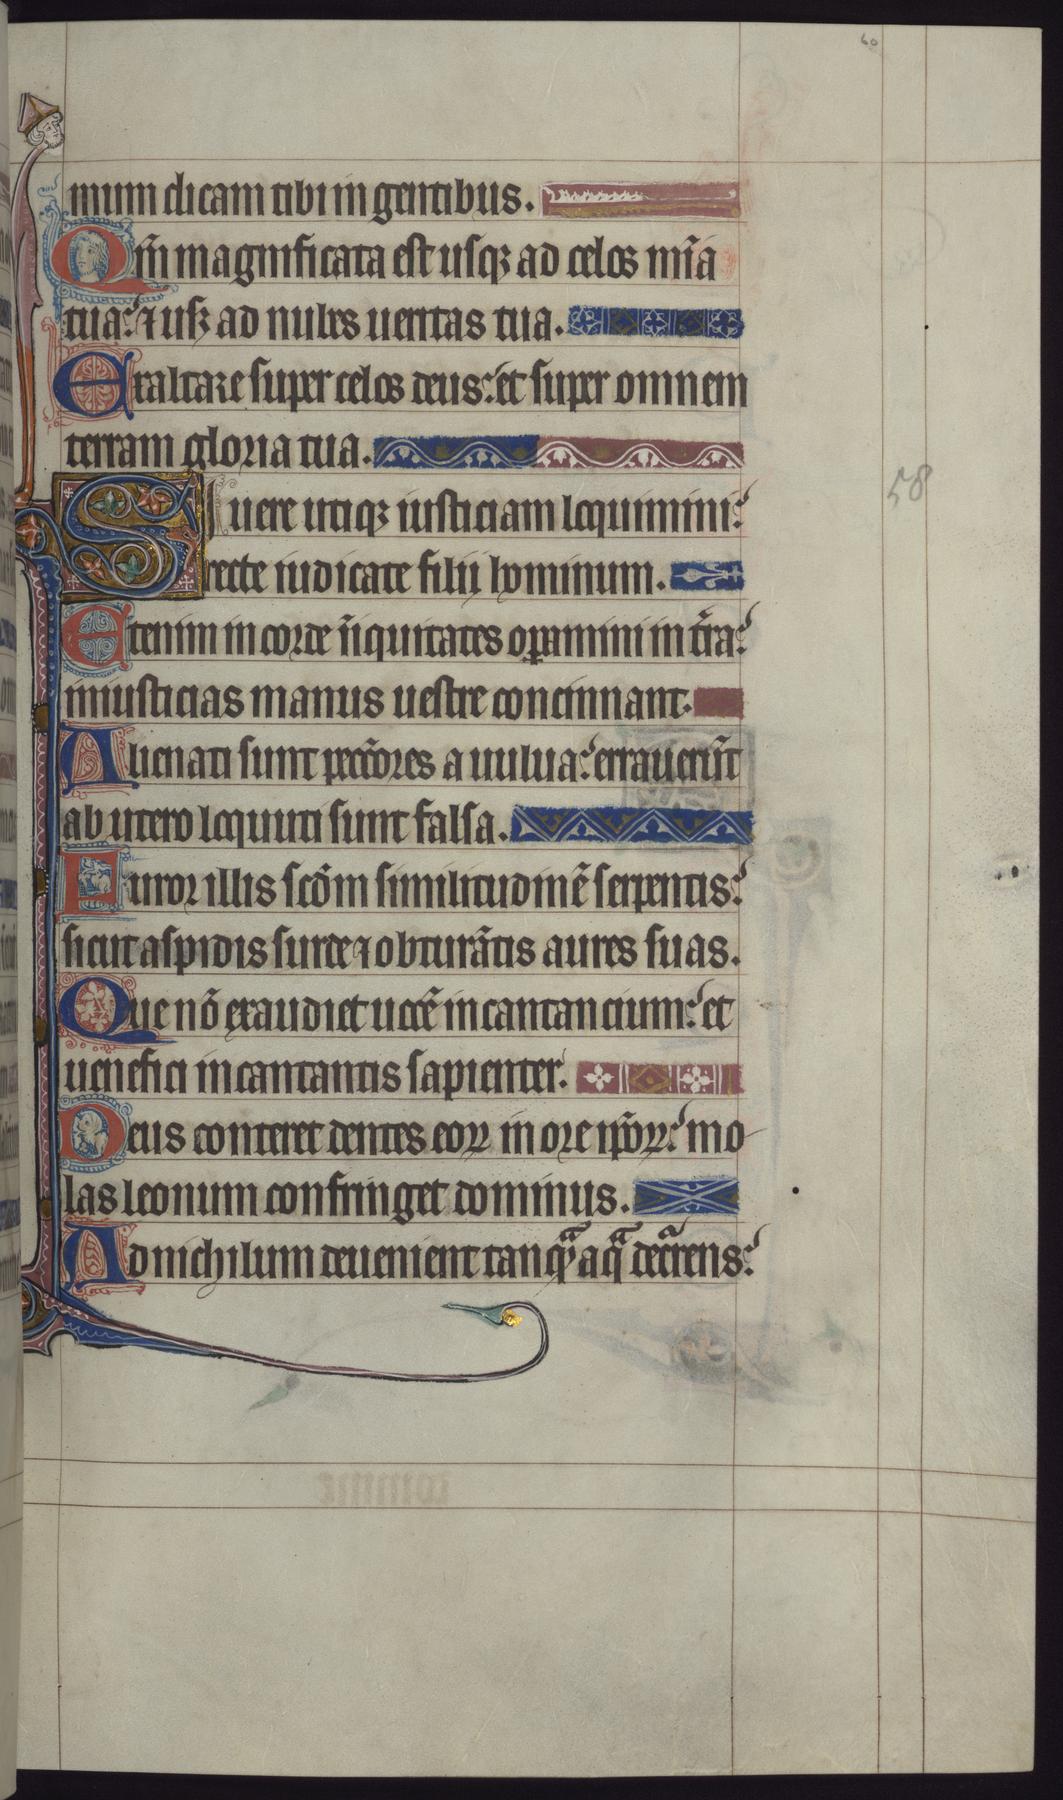 60
mum dicam tibi in gentibus.
Qm̄ magnificata est usqꝫ ad celos mīa
tua: ⁊ usꝫ ad nubes ueritas tua.
Exaltare super celos deus: et super omnem
terram gloria tua.
Si uere utiqꝫ iusticiam loquimini:
recte iudicate filii hominum.
58
Etenim in corde īiquitates oꝑamini in t̄ra:
iniusticias manus uestre concinnant.
Alienati sunt pecc̄ores a uulua: errauerūt
ab utero locuti sunt falsa.
Furor illis scd̄m similitudinē serpentis:
sicut aspidis surde ⁊ obturātis aures suas.
Que nō exaudiet uocē incantancium: et
uenefici incantantis sapienter.
Deus conteret dentes eoꝝ in ore ip̄oꝝ: mo-
las leonum confringet dominus.
Ad nichilum deuenient tanqᵃ aqᵃ decᵃrens: